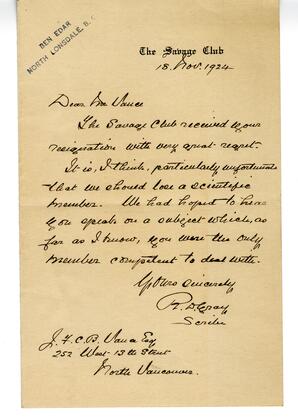 BEN EDAR
NORTH LONSDALE, B. C.
The Savage Club
18. Nov. 1924
Dear Mr Vance
The Savage Club received your
resignation with very great regret.
It is, I think, particularly unfortunate
that we should lose a scientific
member. We had hoped to hear
you speak on a subject which, as
far as I know, you were the only
member competent to deal with.
Yours sincerely
R. D. Gray
Scribe
J. F. C. B. Vance Esq
252 West 13th Street
North Vancouver.